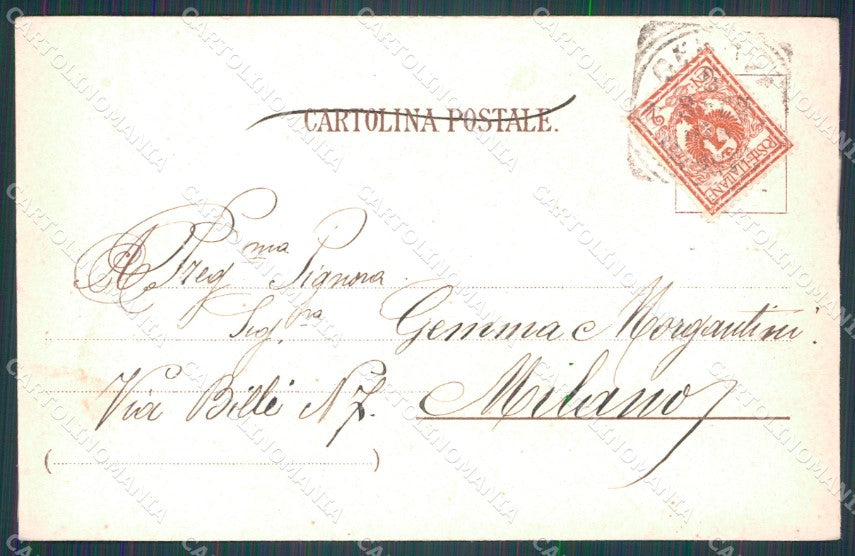 CARTOLINA POSTALE.
A Preg.ma Signora
Sig.ra Gemma Morgantini
Via Bill N 7. Milano
POSTE ITALIANE
CARTOLINOMANIA